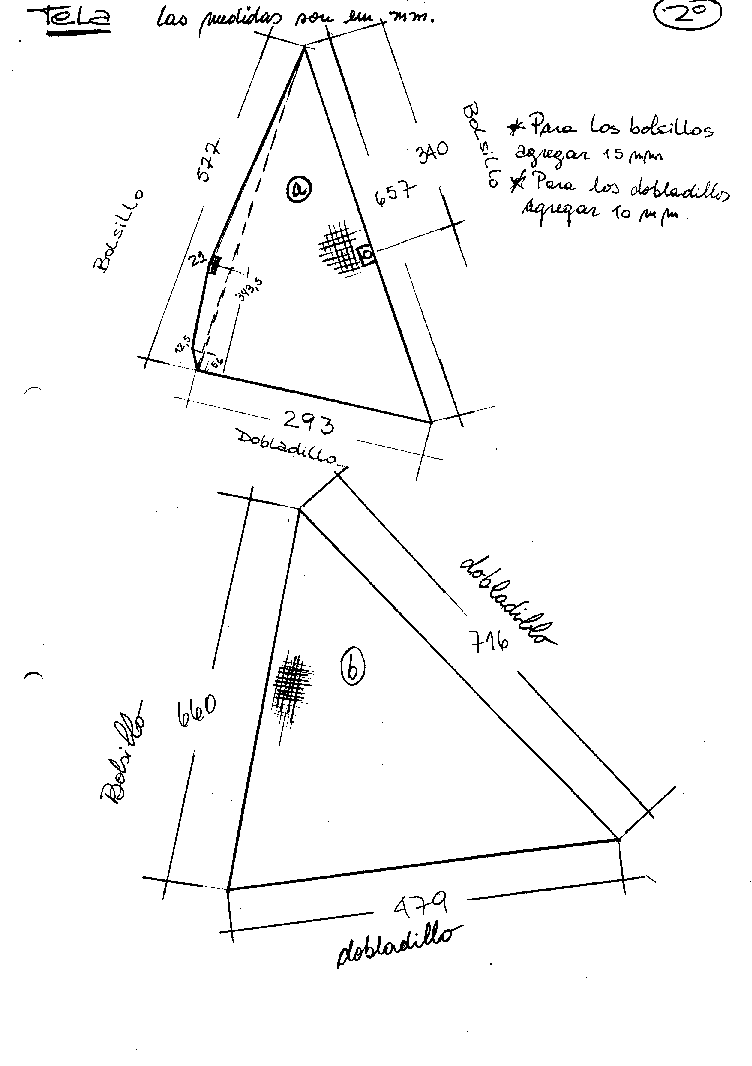 TELA las medidas son em mm.
2º
577
a
340
657
Bolsillo
* Para los bolsillos
agregar 15 mm
* Para los dobladillos
agregar 10 mm.
Bolsillo
29
343,5
12,5
56
293
Dobladillo
dobladillo
716
b
660
Bolsillo
479
dobladillo